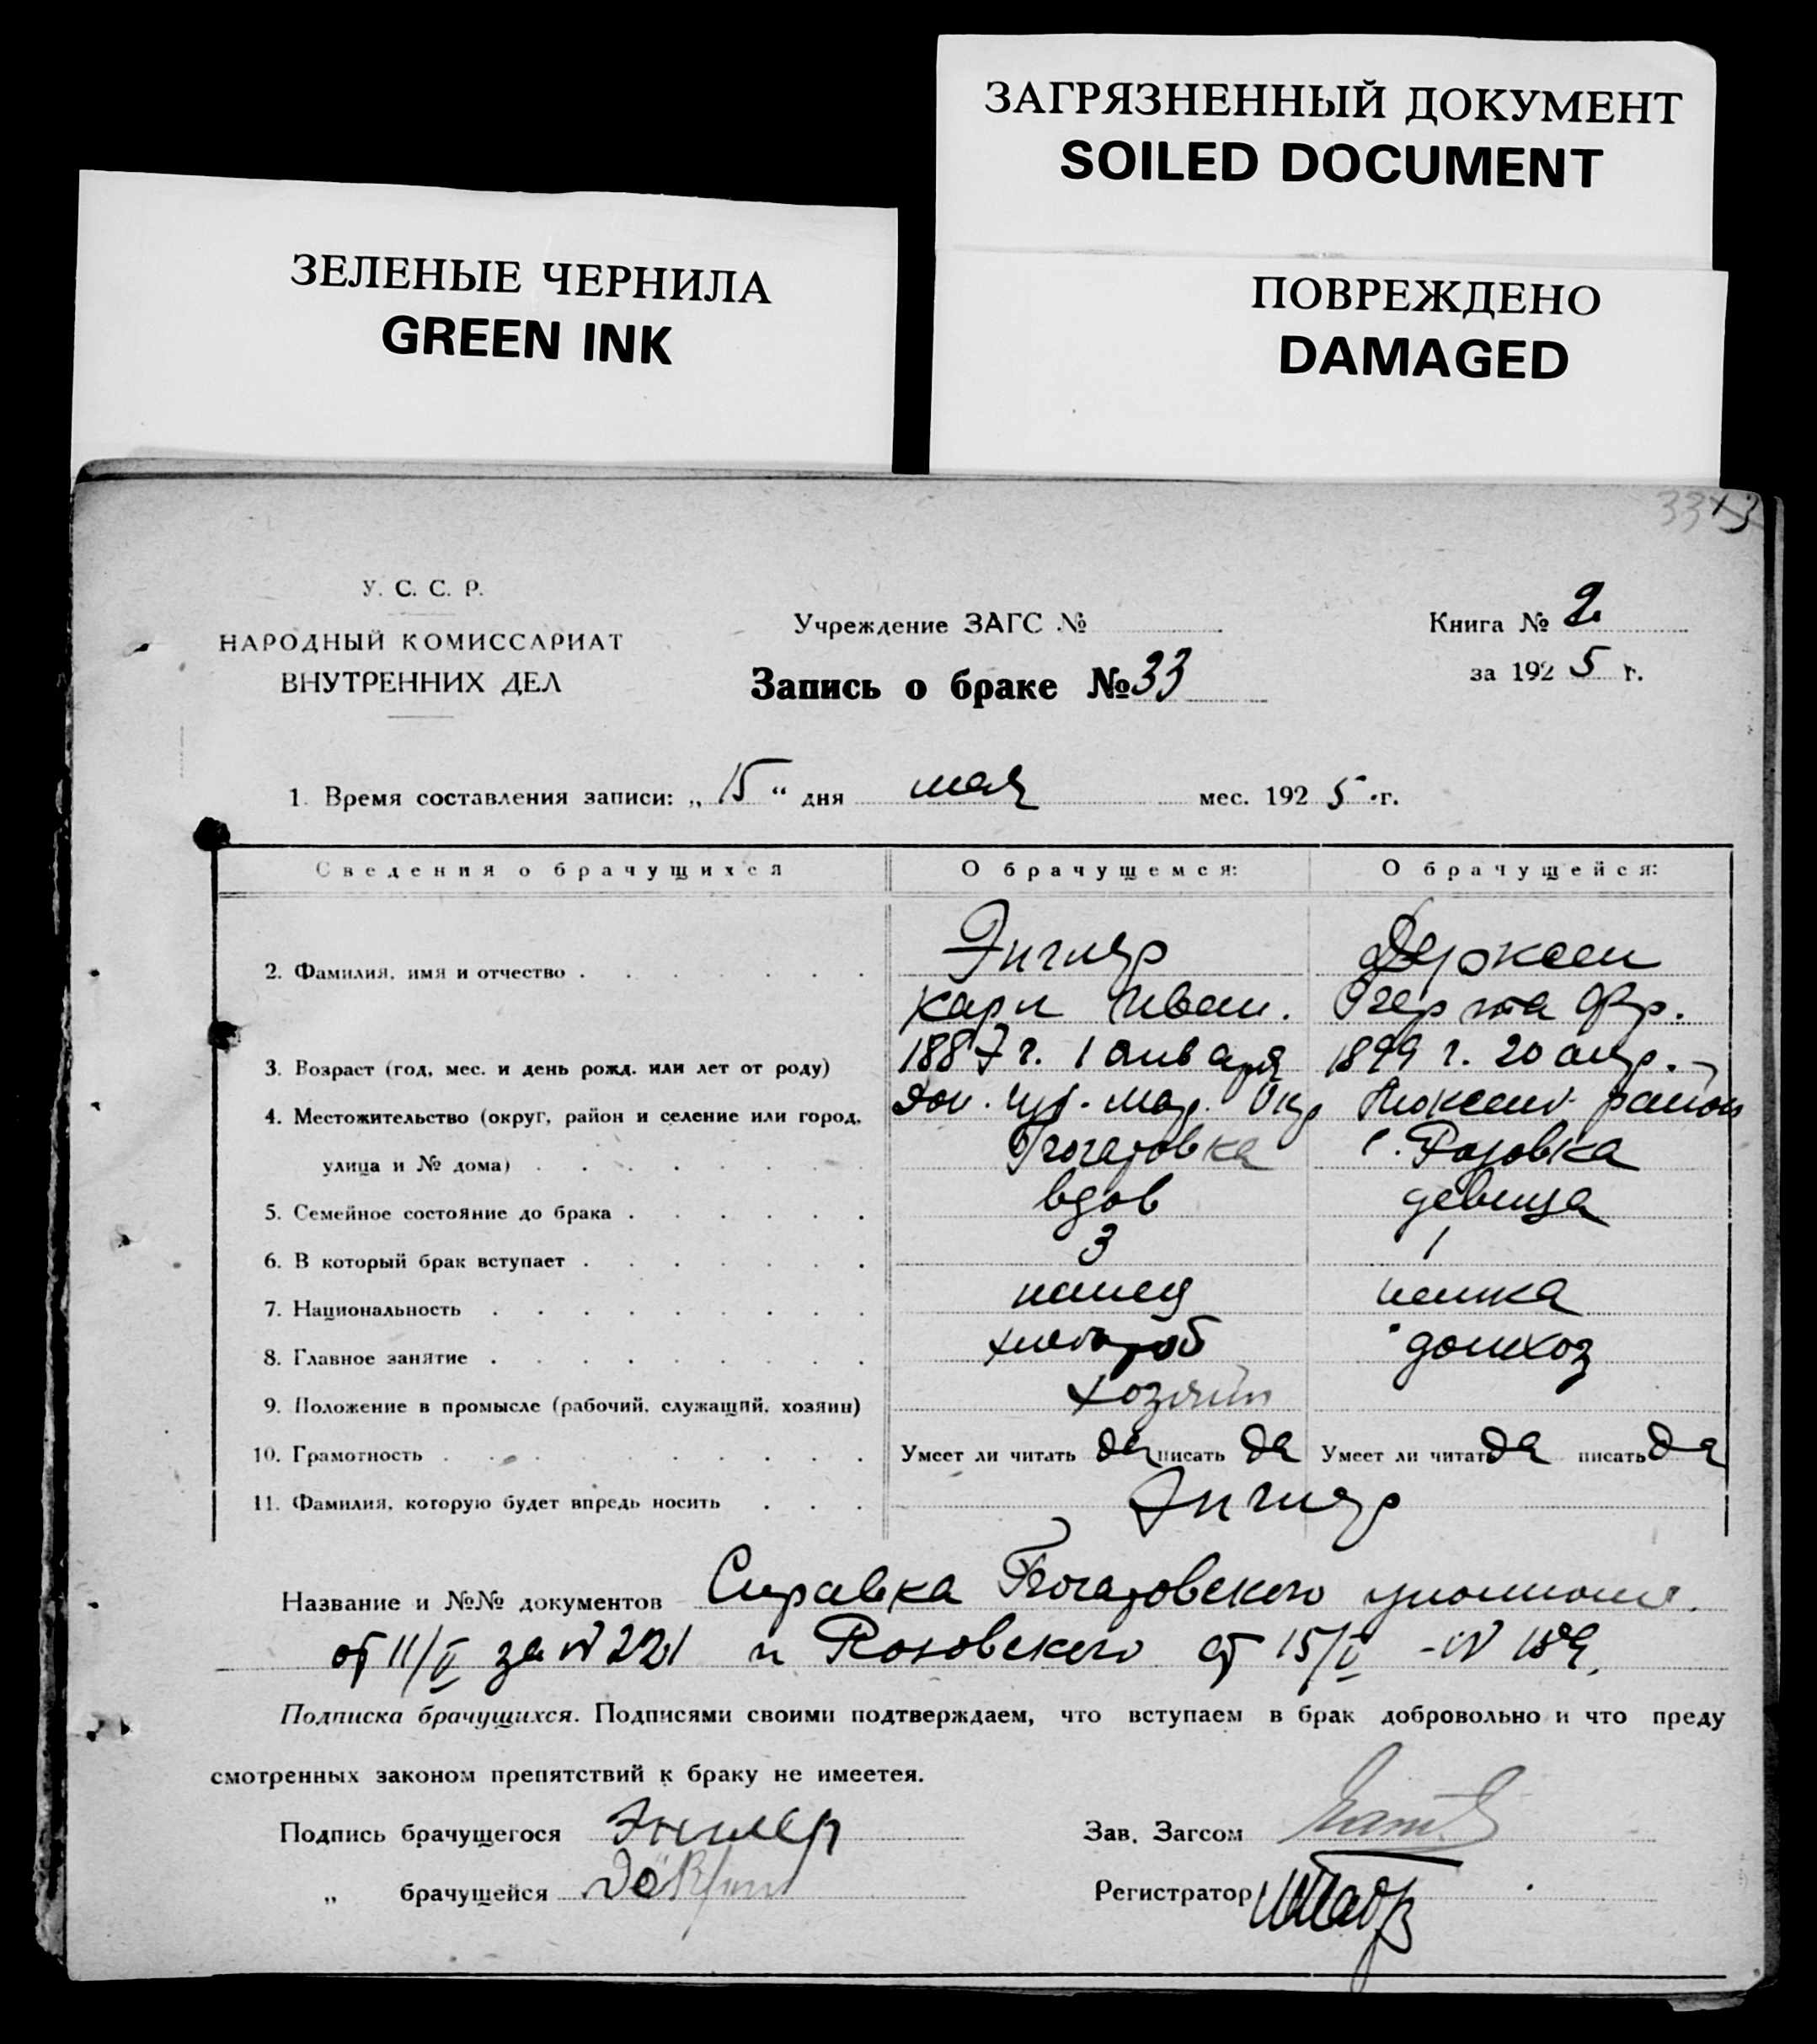 ЗАГРЯЗНЕННЫЙ ДОКУМЕНТ
SOILED DOCUMENT
ЗЕЛЕНЫЕ ЧЕРНИЛА
GREEN INK
ПОВРЕЖДЕНО
DAMAGED
33
У. С. С. Р.
НАРОДНЫЙ КОМИССАРИАТ
ВНУТРЕННИХ ДЕЛ
Учреждение ЗАГС №
Запись о браке № 33
Книга № 2
за 1925 г.
1. Время составления записи: „ 15 “ дня мая мес. 1925 г.
Сведения о брачущихся О брачущемся: О брачущейся:
2. Фамилия, имя и отчество Энглер Дерксен
Карл Иван. Герта Фр.
3. Возраст (год, мес. и день рожд. или лет от роду) 1887 г. 1 января 1899 г. 20 апр.
4. Местожительство (округ, район и селение или город, Окр район
улица и № дома) с. Розовка
5. Семейное состояние до брака вдов девица
6. В который брак вступает 3 1
7. Национальность немец немка
8. Главное занятие хлебороб домхоз
9. Положение в промысле (рабочий, служащий, хозяин) хозяин
10. Грамотность Умеет ли читать да писать да Умеет ли читать да писать да
11. Фамилия, которую будет впредь носить Энглер
Название и №№ документов Справка
от 11/V за № 221 и Розовского от 15/V - № 189.
Подписка брачущихся. Подписями своими подтверждаем, что вступаем в брак добровольно и что преду
смотренных законом препятствий к браку не имеетея.
Подпись брачущегося Энглер Зав. Загсом
„ брачущейся Регистратор